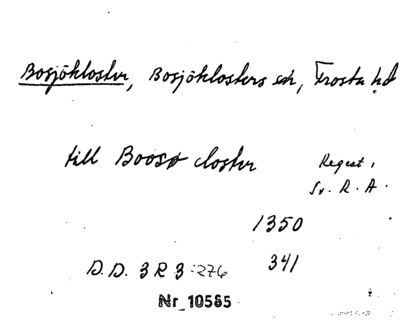 Bosjökloster, Bosjöklosters sn, Frosta hd
till Boosø closter Regest.
Sv. R. A.
1350
D.D. 3 R 3 :276 341
Nr 10585